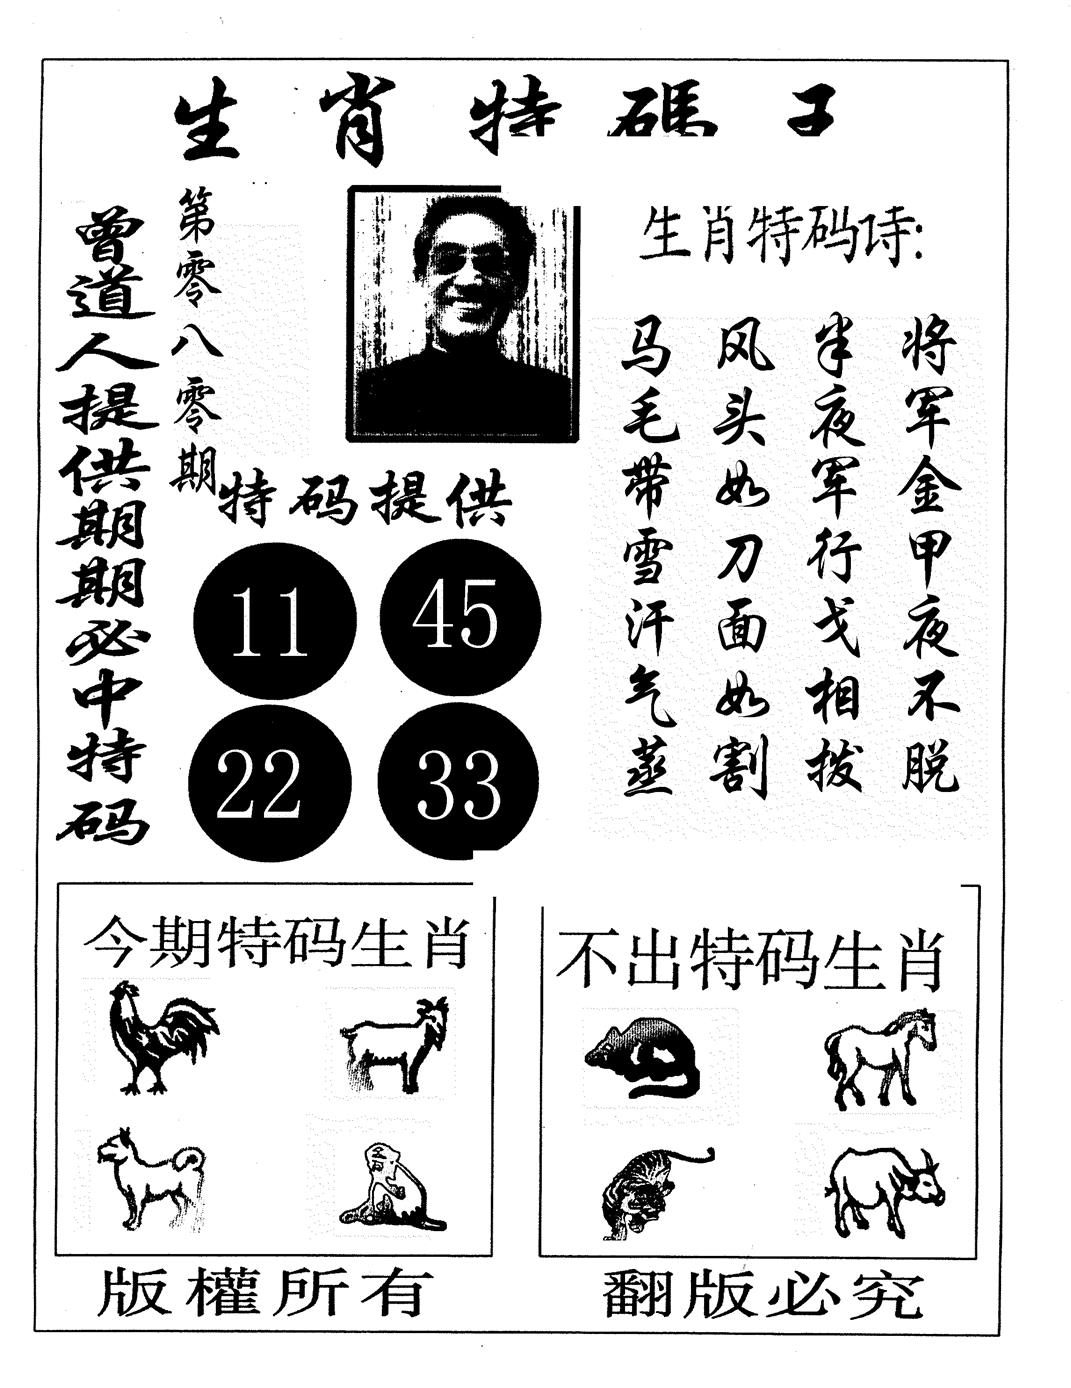 生肖特碼
曾道人提供期期必中特码
第零八零期
生肖特码诗:
将军金甲夜不脱
半夜军行戈相拨
风头如刀面如割
马毛带雪汗气蒸
特码提供
11 45
22 33
今期特码生肖
不出特码生肖
版權所有
翻版必究